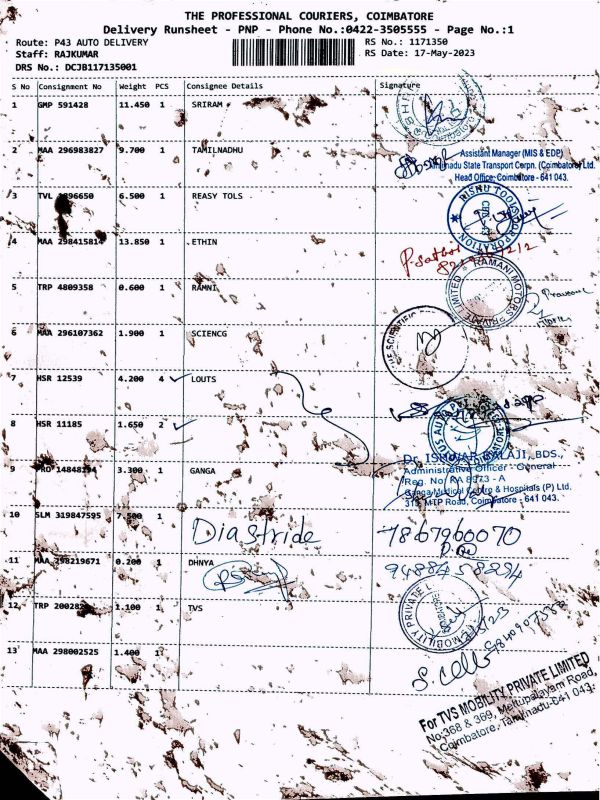 THE PROFESSIONAL COURIERS, COIMBATORE
Delivery Runsheet - PNP - Phone No.:0422-3505555 - Page No.:1
Route: P43 AUTO DELIVERY RS No.: 1171350
Staff: RAJKUMAR RS Date: 17-May-2023
DRS No.: DCJB117135001
S No Consignment No Weight PCS Consignee Details Signature
1 GMP 591428 11.450 1 SRIRAM
2 MAA 296983827 9.700 1 TAMILNADHU
Assistant Manager (MIS & EDP)
State Transport Corpn. (Coimbatore) Ltd.
Head Office, Coimbatore - 641 043.
3 TVL 6.500 1 REASY TOLS
RISHU TOOLS CORPORATION
4 MAA 298415814 13.850 1 ETHIN
5 TRP 4809358 0.600 1 RAMNI
RAMANI MOTORS PRIVATE LIMITED
6 MAA 296107362 1.900 1 SCIENCG
SCIENTIFIC
7 HSR 12539 4.200 4 LOUTS
8 HSR 11185 1.650 2
Dr. ISHWAR BALAJI, BDS.,
Administrative Officer - General
Reg. No. KA 8973 - A
9 PRO 3.300 1 GANGA
Ganga Medical Centre & Hospitals (P) Ltd.
313, MTP Road, Coimbatore - 641 043.
10 SLM 319847595 7.500 1
Diastride 7867960070
11 MAA 298219671 0.200 1 DHNYA
12 TRP 1.100 1 TVS
MOBILITY PRIVATE
13 MAA 298002525 1.400 1
For TVS MOBILITY PRIVATE LIMITED
No:368 & 369, Mettupalayam Road,
Coimbatore, Tamilnadu-641 043.